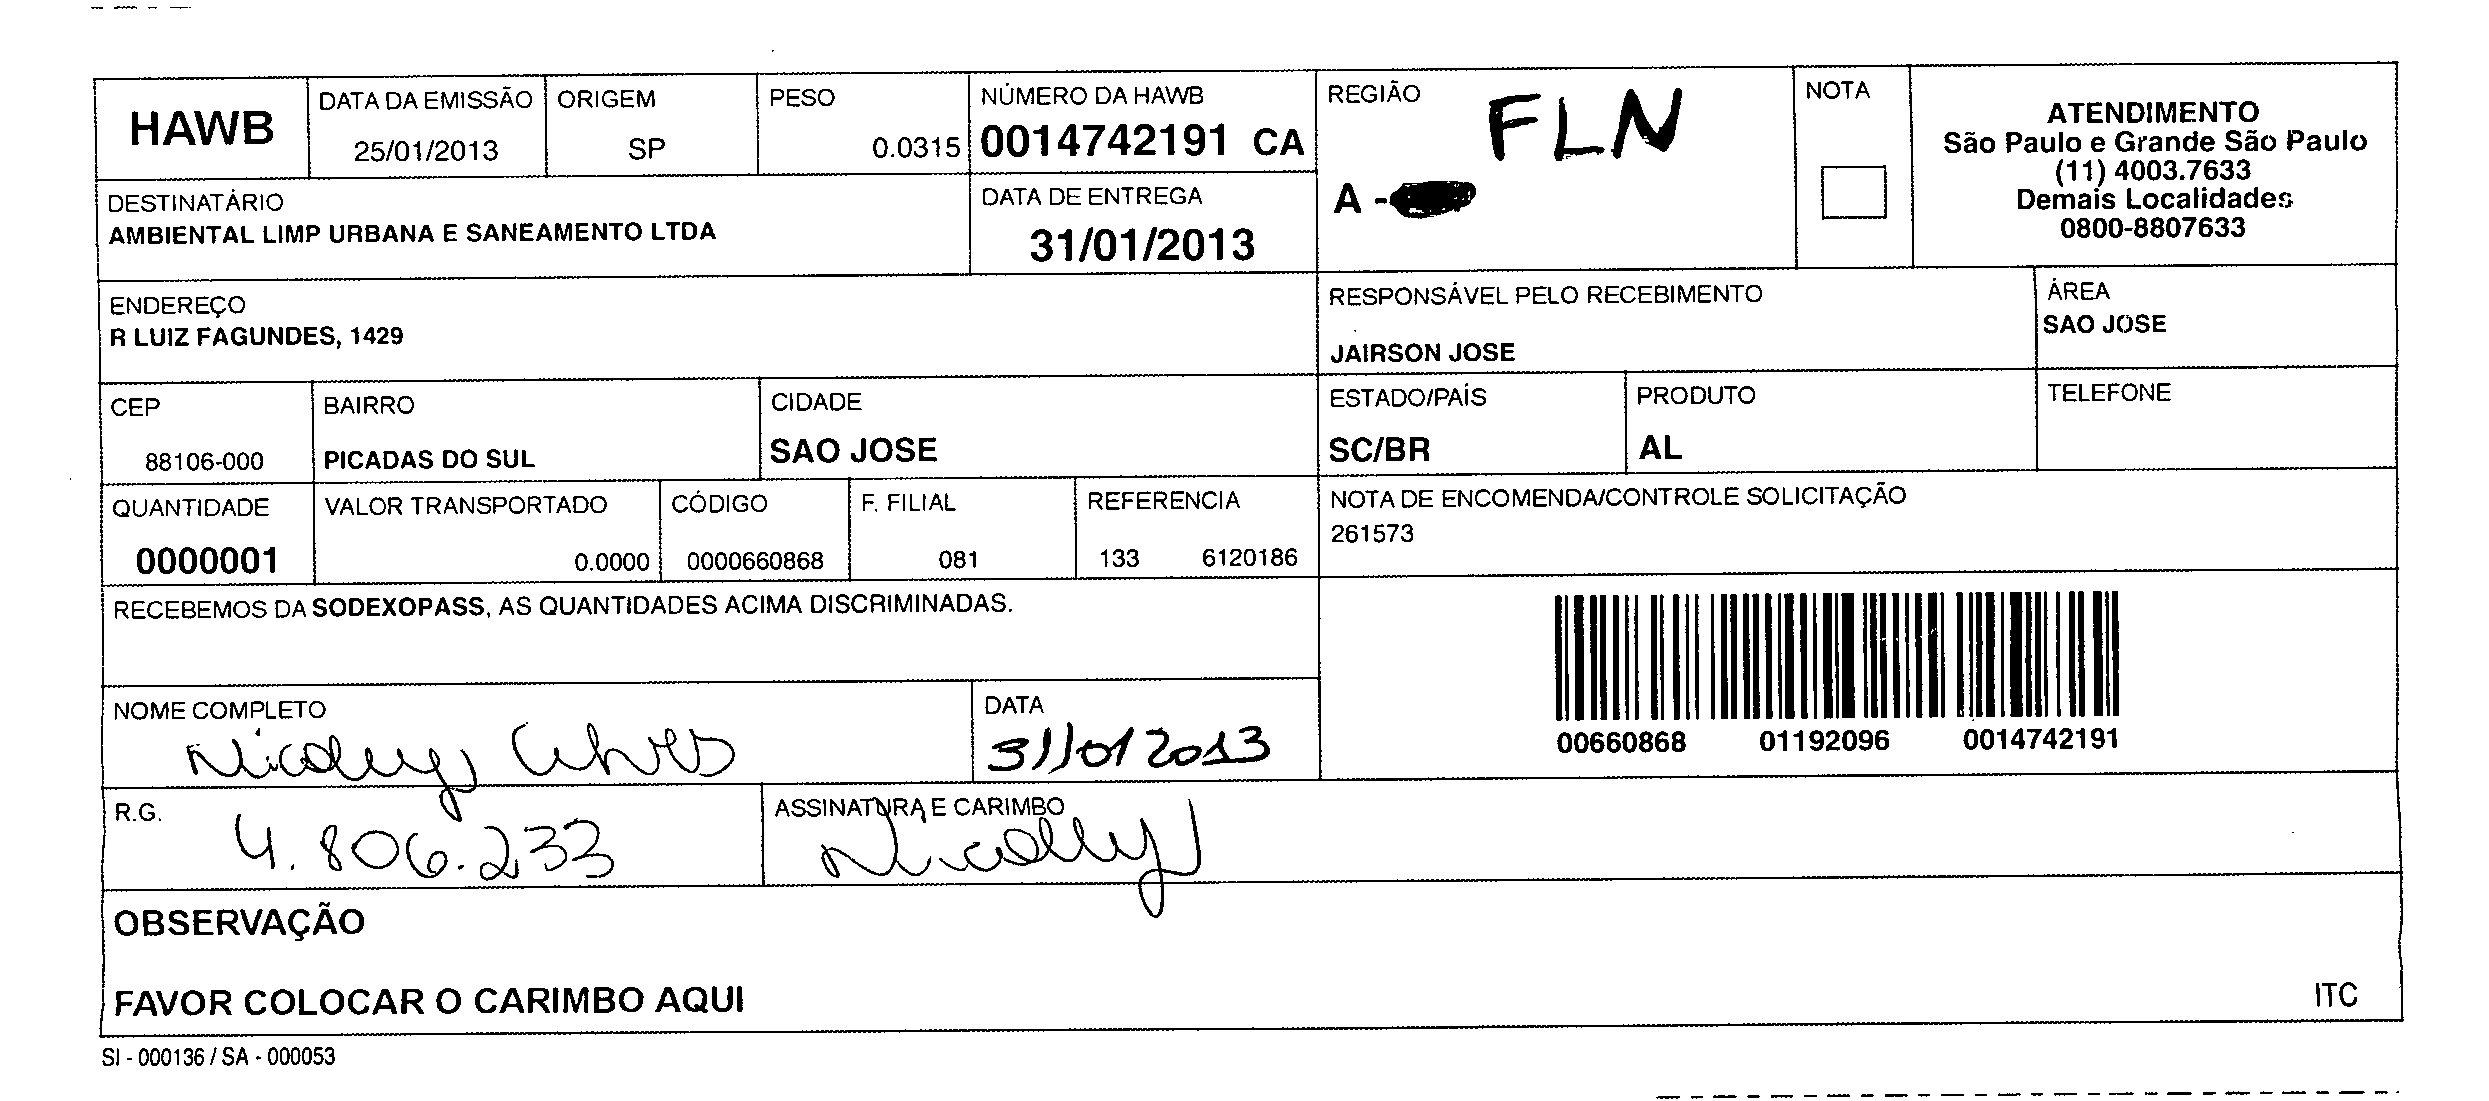 HAWB
DATA DA EMISSÃO
25/01/2013
ORIGEM
SP
PESO
0.0315
NÚMERO DA HAWB
0014742191 CA
REGIÃO
FLN
A -
NOTA
ATENDIMENTO
São Paulo e Grande São Paulo
(11) 4003.7633
Demais Localidades
0800-8807633
DESTINATÁRIO
AMBIENTAL LIMP URBANA E SANEAMENTO LTDA
DATA DE ENTREGA
31/01/2013
ENDEREÇO
R LUIZ FAGUNDES, 1429
RESPONSÁVEL PELO RECEBIMENTO
JAIRSON JOSE
ÁREA
SAO JOSE
CEP
88106-000
BAIRRO
PICADAS DO SUL
CIDADE
SAO JOSE
ESTADO/PAÍS
SC/BR
PRODUTO
AL
TELEFONE
QUANTIDADE
0000001
VALOR TRANSPORTADO
0.0000
CÓDIGO
0000660868
F. FILIAL
081
REFERENCIA
133 6120186
NOTA DE ENCOMENDA/CONTROLE SOLICITAÇÃO
261573
RECEBEMOS DA SODEXOPASS, AS QUANTIDADES ACIMA DISCRIMINADAS.
00660868 01192096 0014742191
NOME COMPLETO
Nicolly
DATA
31/01 2013
R.G.
4.806.233
ASSINATURA E CARIMBO
Nicolly
OBSERVAÇÃO
FAVOR COLOCAR O CARIMBO AQUI
ITC
SI - 000136 / SA - 000053